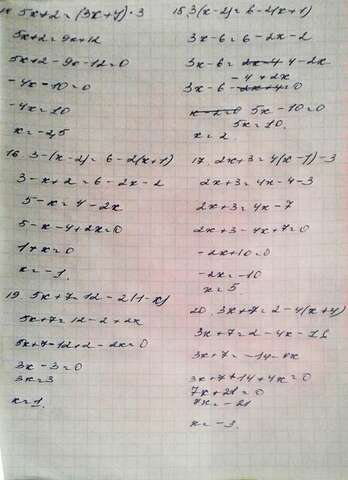 14 5x+2=(3x+4)·3
5x+2=9x+12
5x+2-9x-12=0
-4x-10=0
-4x=10
x=-2,5
15. 3(x-2)=6-2(x+1)
3x-6=6-2x-2
3x-6= 4-2x
-4+2x
3x-6 =0
5x-10=0
5x=10.
x=2
16. 3-(x-2)=6-2(x+1)
3-x+2=6-2x-2
5-x=4-2x
5-x-4+2x=0
1+x=0
x=-1.
17. 2x+3=4(x-1)-3
2x+3=4x-4-3
2x+3=4x-7
2x+3-4x+7=0
-2x+10=0
-2x=-10
x=5
19. 5x+7=12-2(1-x)
5x+7=12-2+2x
5x+7-12+2-2x=0
3x-3=0
3x=3
x=1.
20. 3x+7=2-4(x+4)
3x+7=2-4x-
3x+7=-14-4x
3x+7+14+4x=0
7x+21=0
7x=-21
x=-3